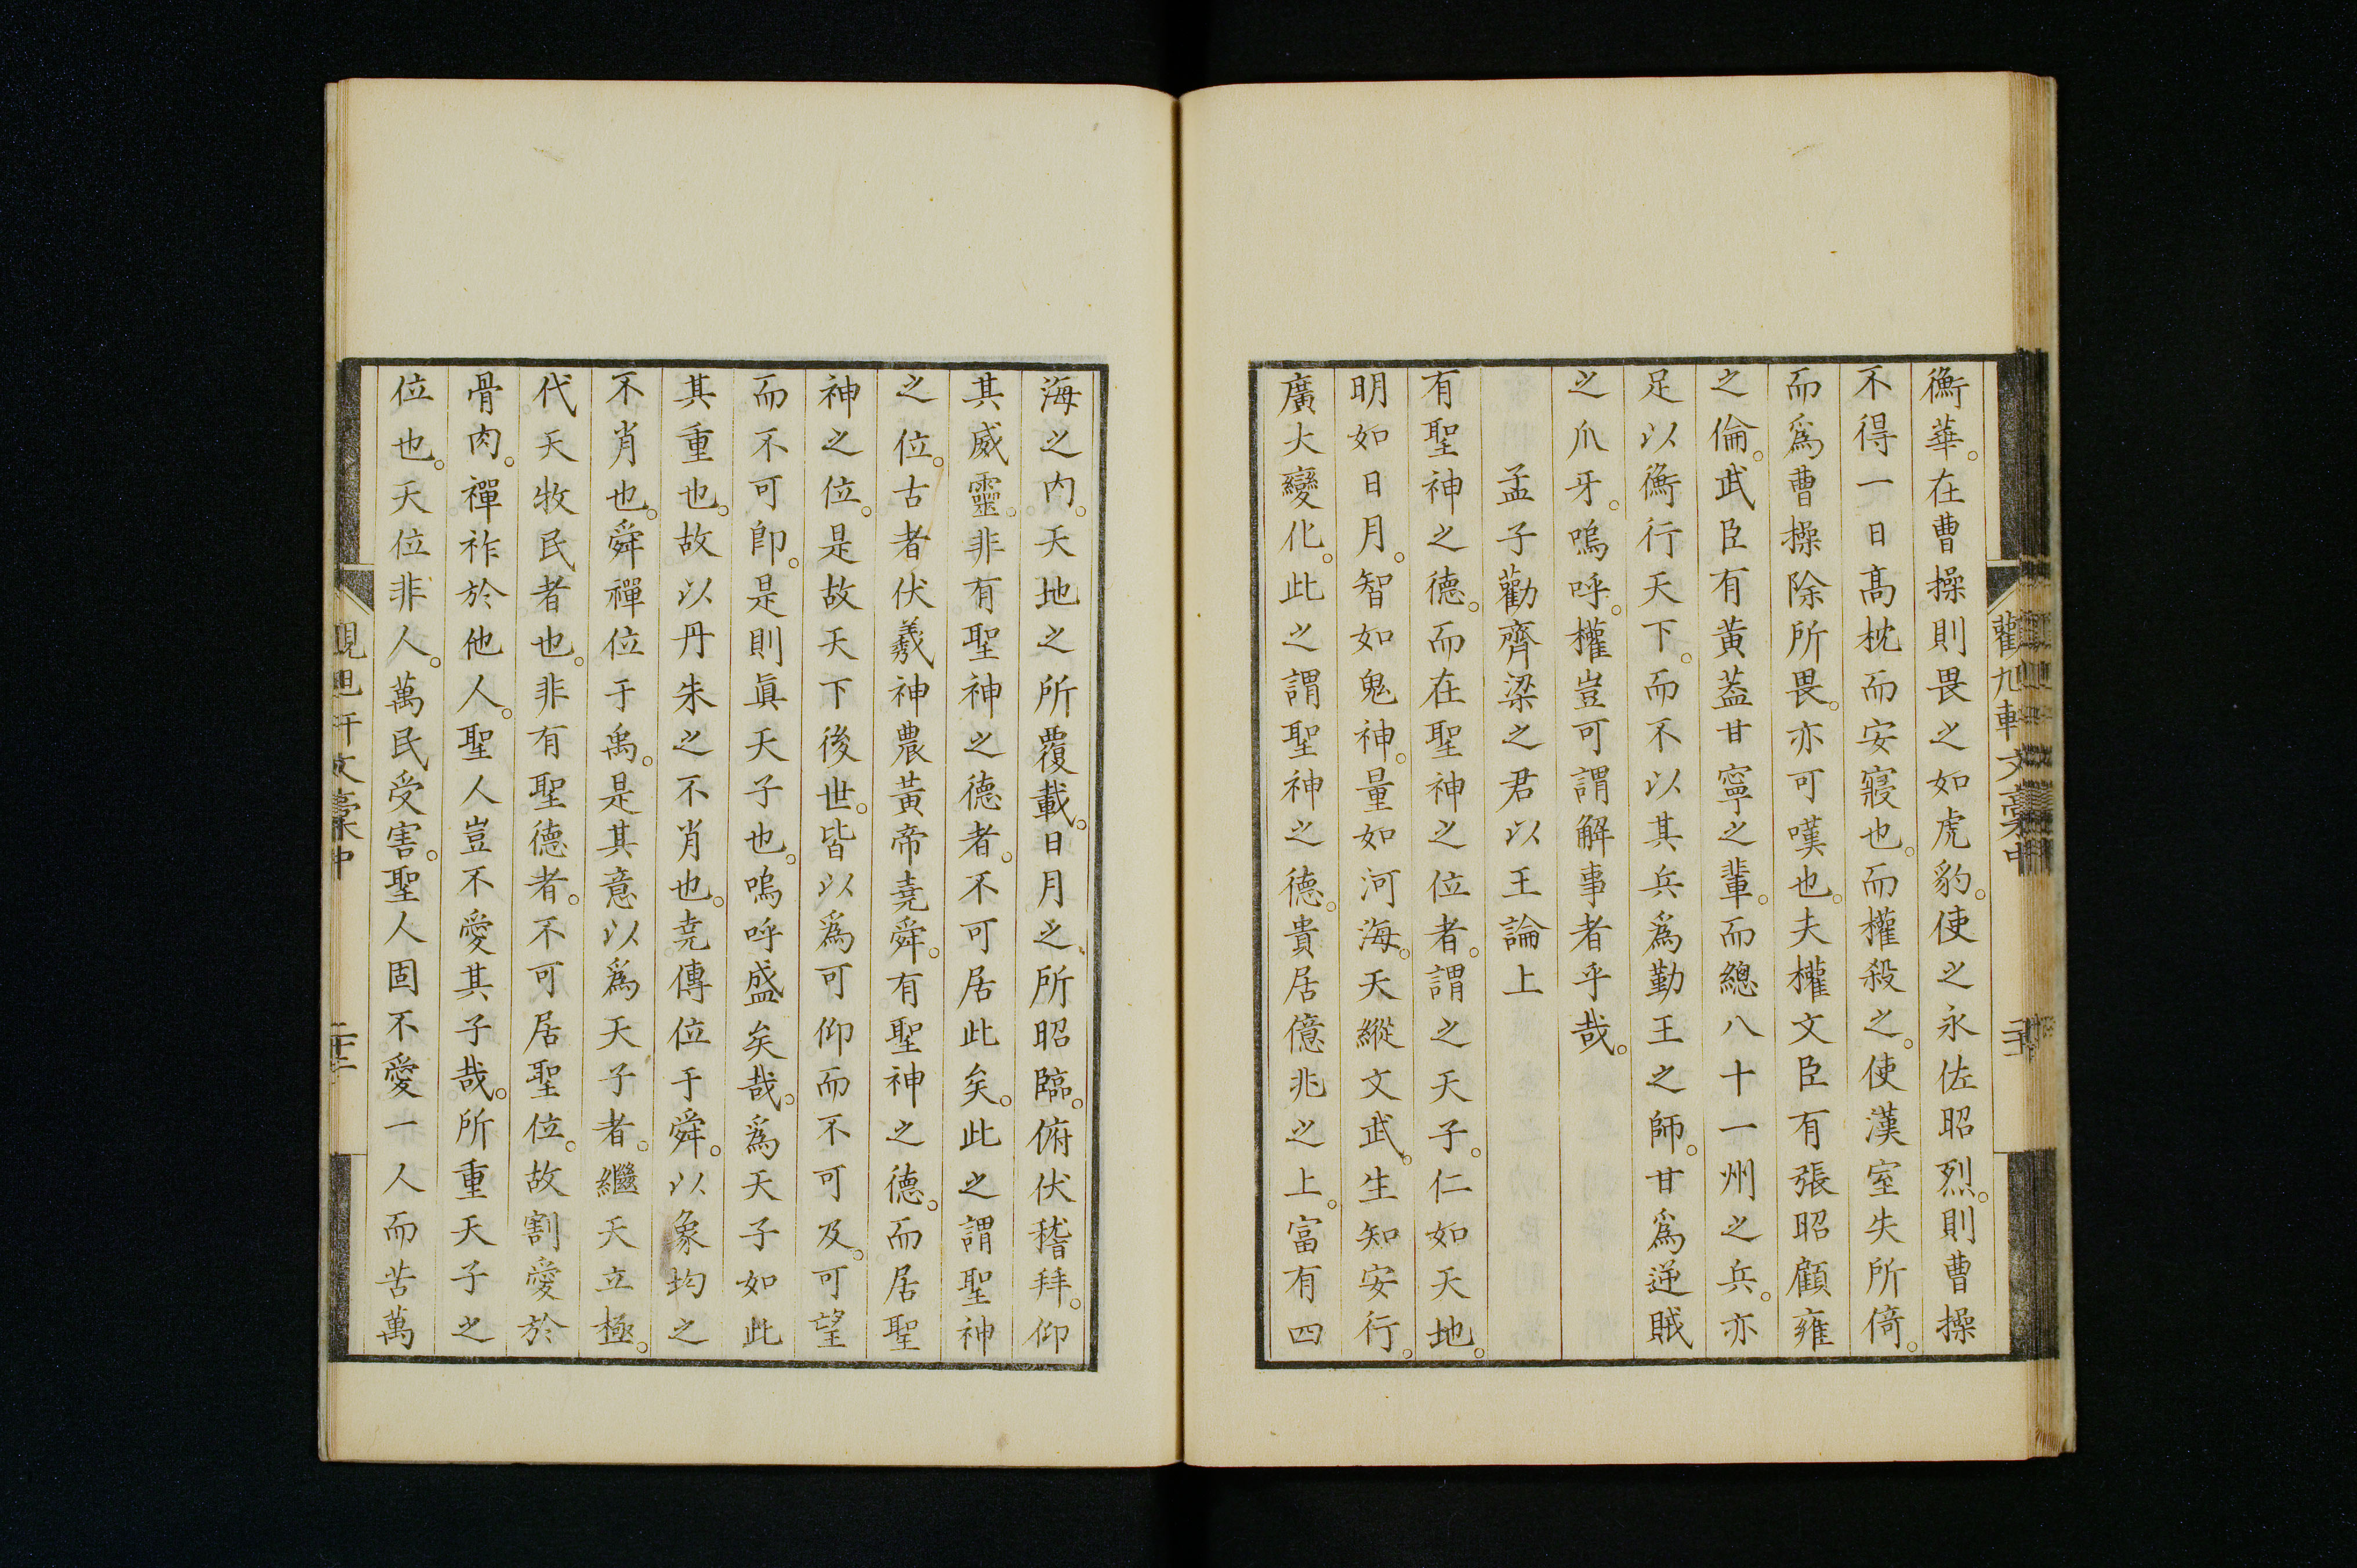 衡華。在曹操則畏之如虎豹。使之永佐昭烈。則曹操
不得一日高枕而安寢也。而權殺之。使漢室失所倚。
而爲曹操除所畏。亦可嘆也。夫權文臣有張昭顧雍
之倫。武臣有黃蓋甘寧之輩。而總八十一州之兵。亦
足以衡行天下。而不以其兵爲勤王之師。甘爲逆賊
之爪牙。嗚呼。權豈可謂解事者乎哉。
孟子勸齊梁之君以王論上
有聖神之德。而在聖神之位者。謂之天子。仁如天地。
明如日月。智如鬼神。量如河海。天縱文武。生知安行。
廣大變化。此之謂聖神之德。貴居億兆之上。富有四
海之內。天地之所覆載。日月之所昭臨。俯伏稽拜。仰
其威靈。非有聖神之德者。不可居此矣。此之謂聖神
之位。古者伏羲神農黃帝堯舜。有聖神之德。而居聖
神之位。是故天下後世。皆以爲可仰而不可及。可望
而不可卽。是則眞天子也。嗚呼盛矣哉。爲天子如此
其重也。故以丹朱之不肖也。堯傳位于舜。以象均之
不肖也。舜禪位于禹。是其意以爲天子者。繼天立極。
代天牧民者也。非有聖德者。不可居聖位。故割愛於
骨肉。禪祚於他人。聖人豈不愛其子哉。所重天子之
位也。天位非人。萬民受害。聖人固不愛一人而苦萬
文稾中